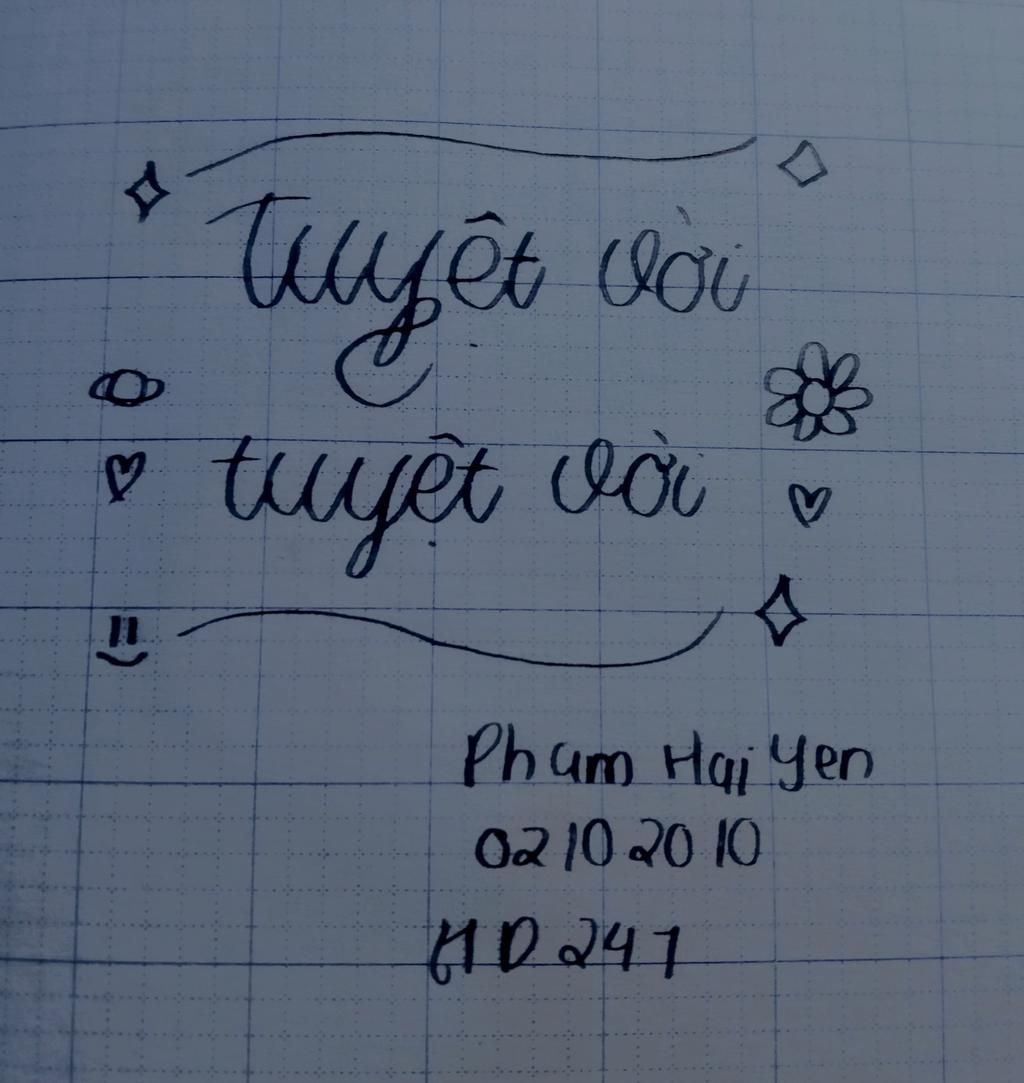 Tuyệt vời
tuyệt vời
Pham Hai Yen
02 10 2010
HD 247